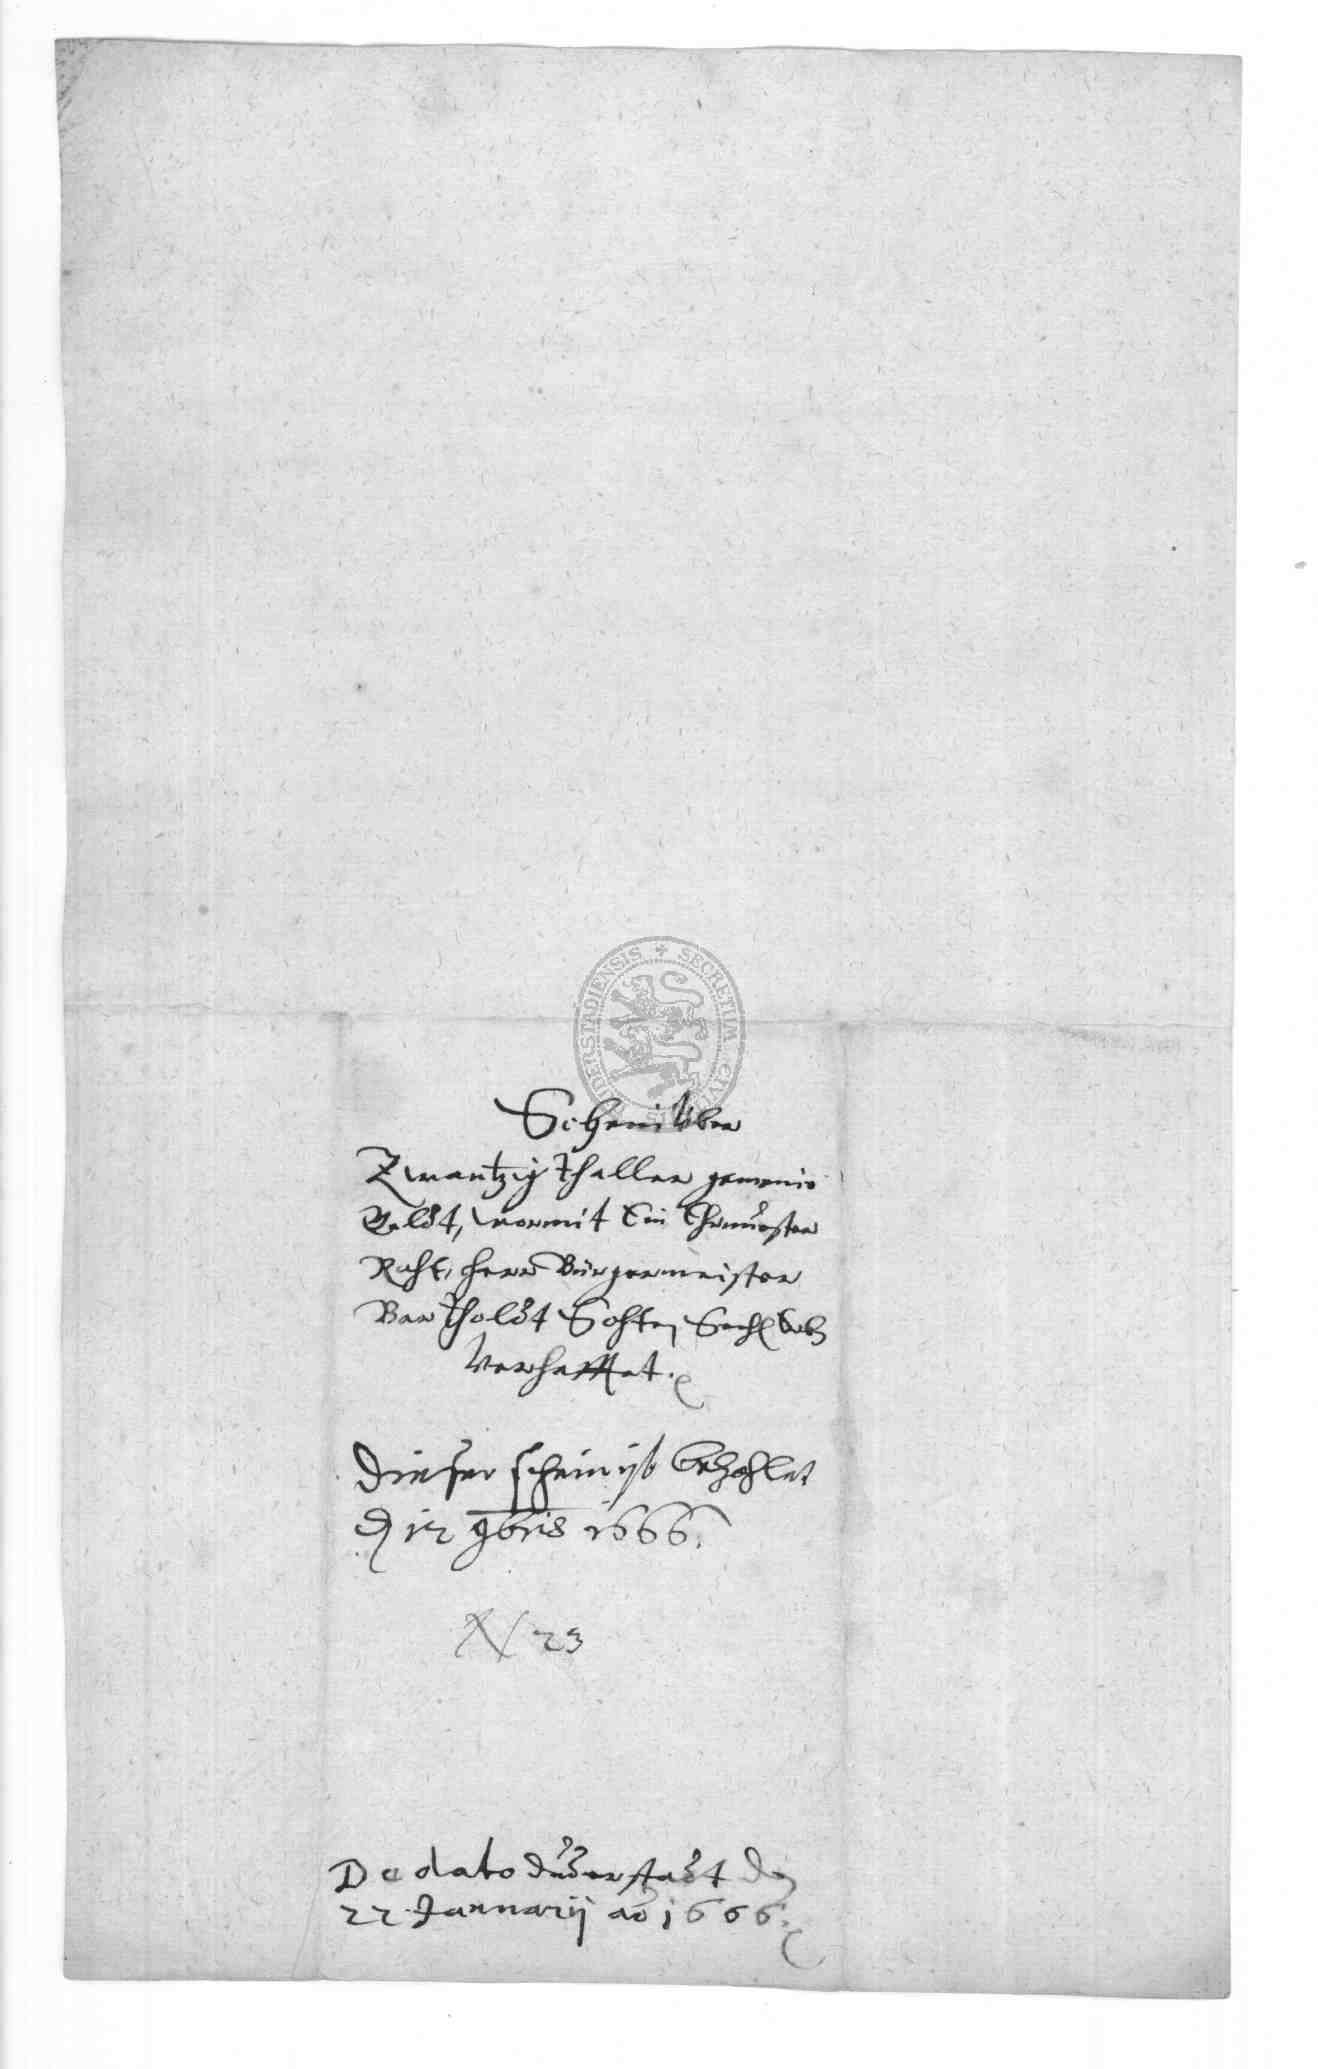 SECRETUM CIVI DERSTADIENSIS
Schein Über
Zwantzig thaller gemeine
Geldt, wormit Ein Ehrnuester
Raht, herrn Bürgermeister
Bartholdt
Verhafftet.
Dieser schein ist bezahlet
d 12 9bris 1666.
N 23
De dato duderstadt den
22 Januarij ao 1666.